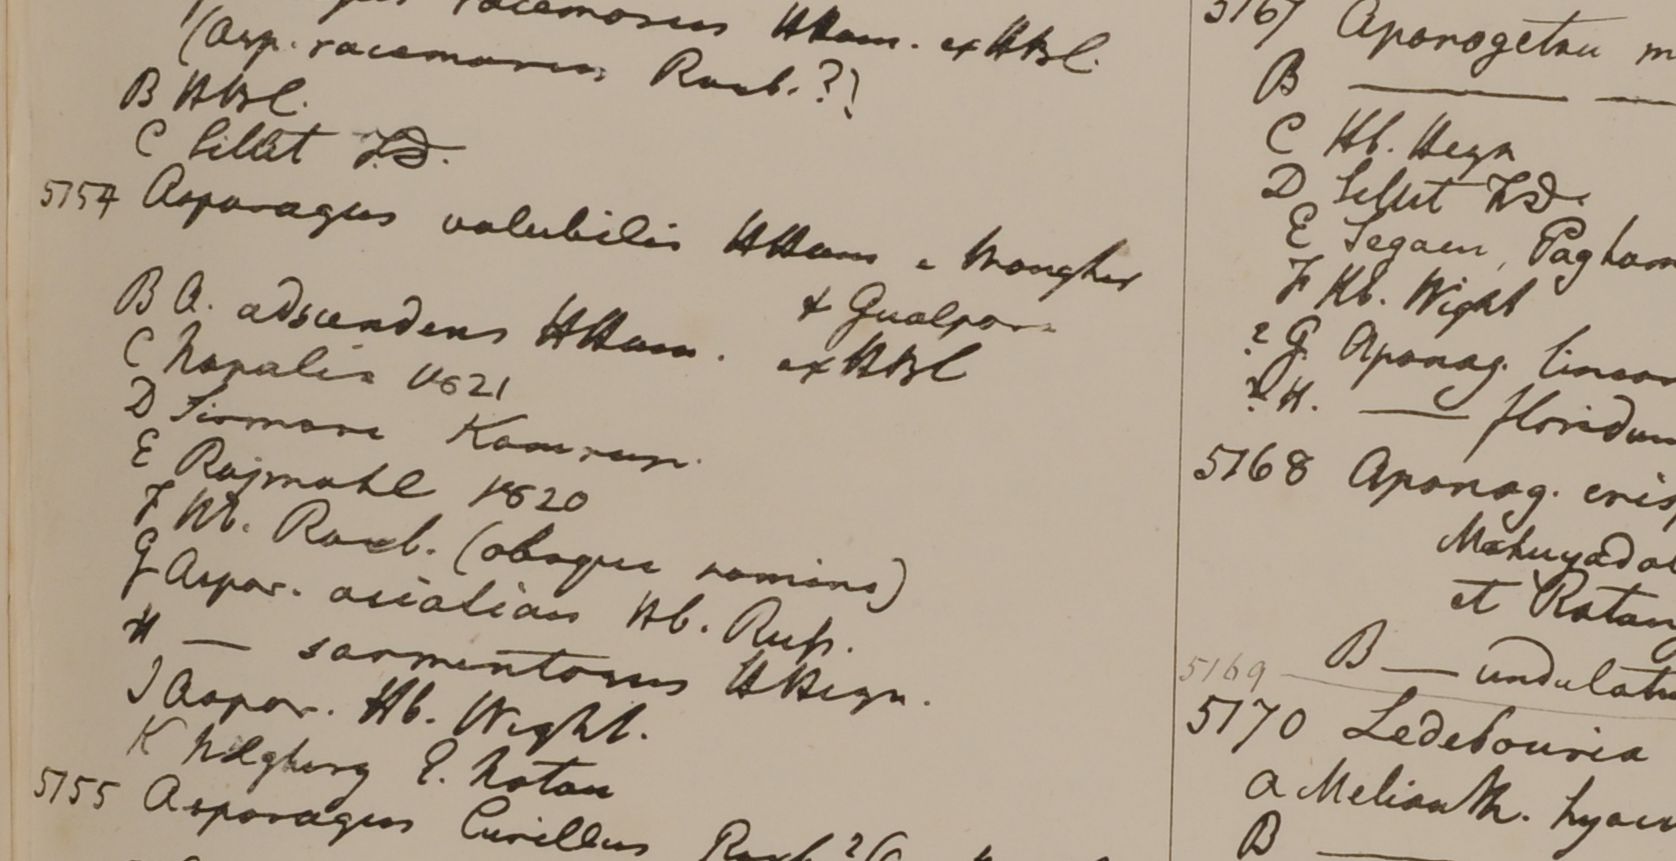 racemosus HHam. ex HBC.
(Asp. racemosus Roxb.??
B HBC.
C Sillet FD.
5154 Asparagus volubilis HHam e Mongher
& Gualpara
B A. adscendens HHam. ex HBC
C Napalia 1821
D Sirmore Kamrup.
E Rajmahl 1820
F Hb. Roxb. (absque nomine)
G Aspar. Hb. Russ.
H — sarmentosus HHeyn.
J Aspar. Hb. Wight.
K Nilghery E. Noton
5155 Asparagus Curillus Roxb?
5167 Aponogeton m
B —— —
C Hb. Heyn
D Sillet FD.
E Segaen, Pagham
F Hb. Wight
? G Aponog. linear
? H. —— floridum
5168 Aponog. cris
et
5169 B —— undulatu
5170 Ledebouria
A Melianth. hyaci
B ——